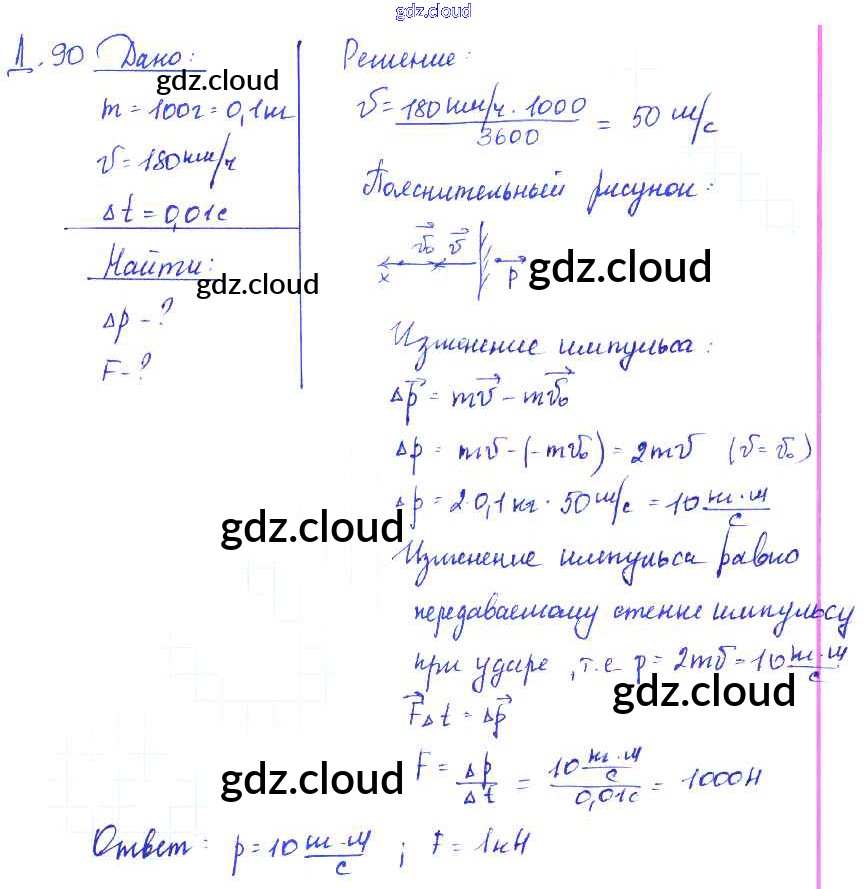 gdz.cloud
1.90 Дано:
gdz.cloud
m = 100г = 0,1кг
v = 180км/ч
Δt = 0,01с
Найти:
gdz.cloud
Δp - ?
F - ?
Решение:
v = 180км/ч · 1000 / 3600 = 50 м/с
Пояснительный рисунок:
v₀ v
x p
gdz.cloud
Изменение импульса:
Δp = mv - mv₀
Δp = mv - (-mv₀) = 2mv (v = v₀)
Δp = 2·0,1кг · 50м/с = 10 кг·м/с
gdz.cloud
Изменение импульса равно
передаваемому стенке импульсу
при ударе, т.е p = 2mv = 10 кг·м/с
gdz.cloud
FΔt = Δp
F = Δp/Δt = 10 кг·м/с / 0,01с = 1000Н
gdz.cloud
Ответ: p = 10 кг·м/с ; F = 1кН